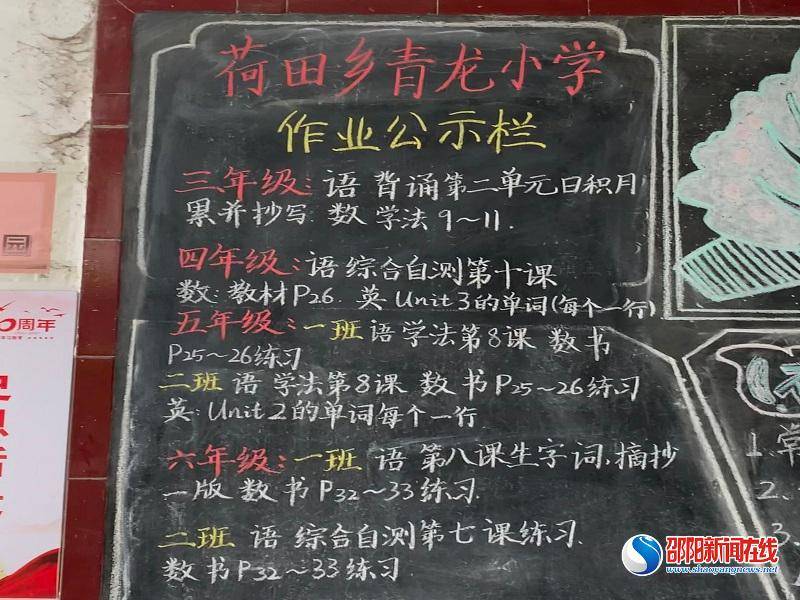 荷田乡青龙小学
作业公示栏
三年级: 语 背诵第二单元日积月
累并抄写. 数 学法9~11.
四年级: 语 综合自测第十课
数: 教材P26. 英 Unit 3的单词(每个一行)
五年级: 一班 语 学法第8课 数书
P25~26练习
二班 语 学法第8课 数书P25~26练习
英: Unit 2的单词每个一行
六年级: 一班 语 第八课生字词,摘抄
一版 数书P32~33练习.
二班 语 综合自测第七课练习.
数书P32~33练习
0周年
1.常
2.
3.
邵阳新闻在线
www.shaoyangnews.net